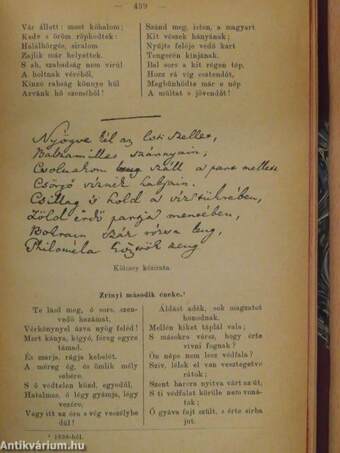 — 459 —
Vár állott: most kőhalom;
Kedv s öröm röpkedtek:
Halálhörgés, siralom
Zajlik már helyettek.
S ah, szabadság nem virúl
A holtnak véréből,
Kínzó rabság könnye hull
Árvánk hő szeméből!
Szánd meg, isten, a magyart
Kit vészek hányának;
Nyújts feléje védő kart
Tengerén kínjának.
Bal sors a kit régen tép,
Hozz rá víg esztendőt,
Megbűnhődte már e nép
A múltat s jövendőt!
Nyögve kél az esti szellet,
szárnyain,
Csolnakom leng száll a part mellett
Csörgő víznek habjain.
Csillag s hold a víz tükrében,
Zöld erdő partja mentében,
Philoméla zeng
Kölcsey kézirata.
Zrínyi második éneke.¹
Te lásd meg, ó sors, szenvedő
hazámat,
Vérkönnyel ázva nyög feléd!
Mert kánya, kígyó, féreg egyre
támad,
És marja, rágja kebelét.
A méreg ég, és ömlik mély
sebére,
S ő védtelen küzd, egyedűl,
Hatalmas, ó légy gyámja, légy
vezére,
Vagy itt az ős s vég veszélybe
dűl!
Áldást adék, sok magzatot
honodnak,
Mellén kiket táplál vala;
S másokra vársz, hogy érte
vívni fognak?
Ön népe nem lesz védfala?
Szív, lélek el van vesztegetve
rátok,
Szent harcra nyitva várt az út,
S ti védfalat körűle nem vonátok;
Ó gyáva fajt szült, s érte sírba
jut.
¹ 1838-ból.
Antikvárium.hu